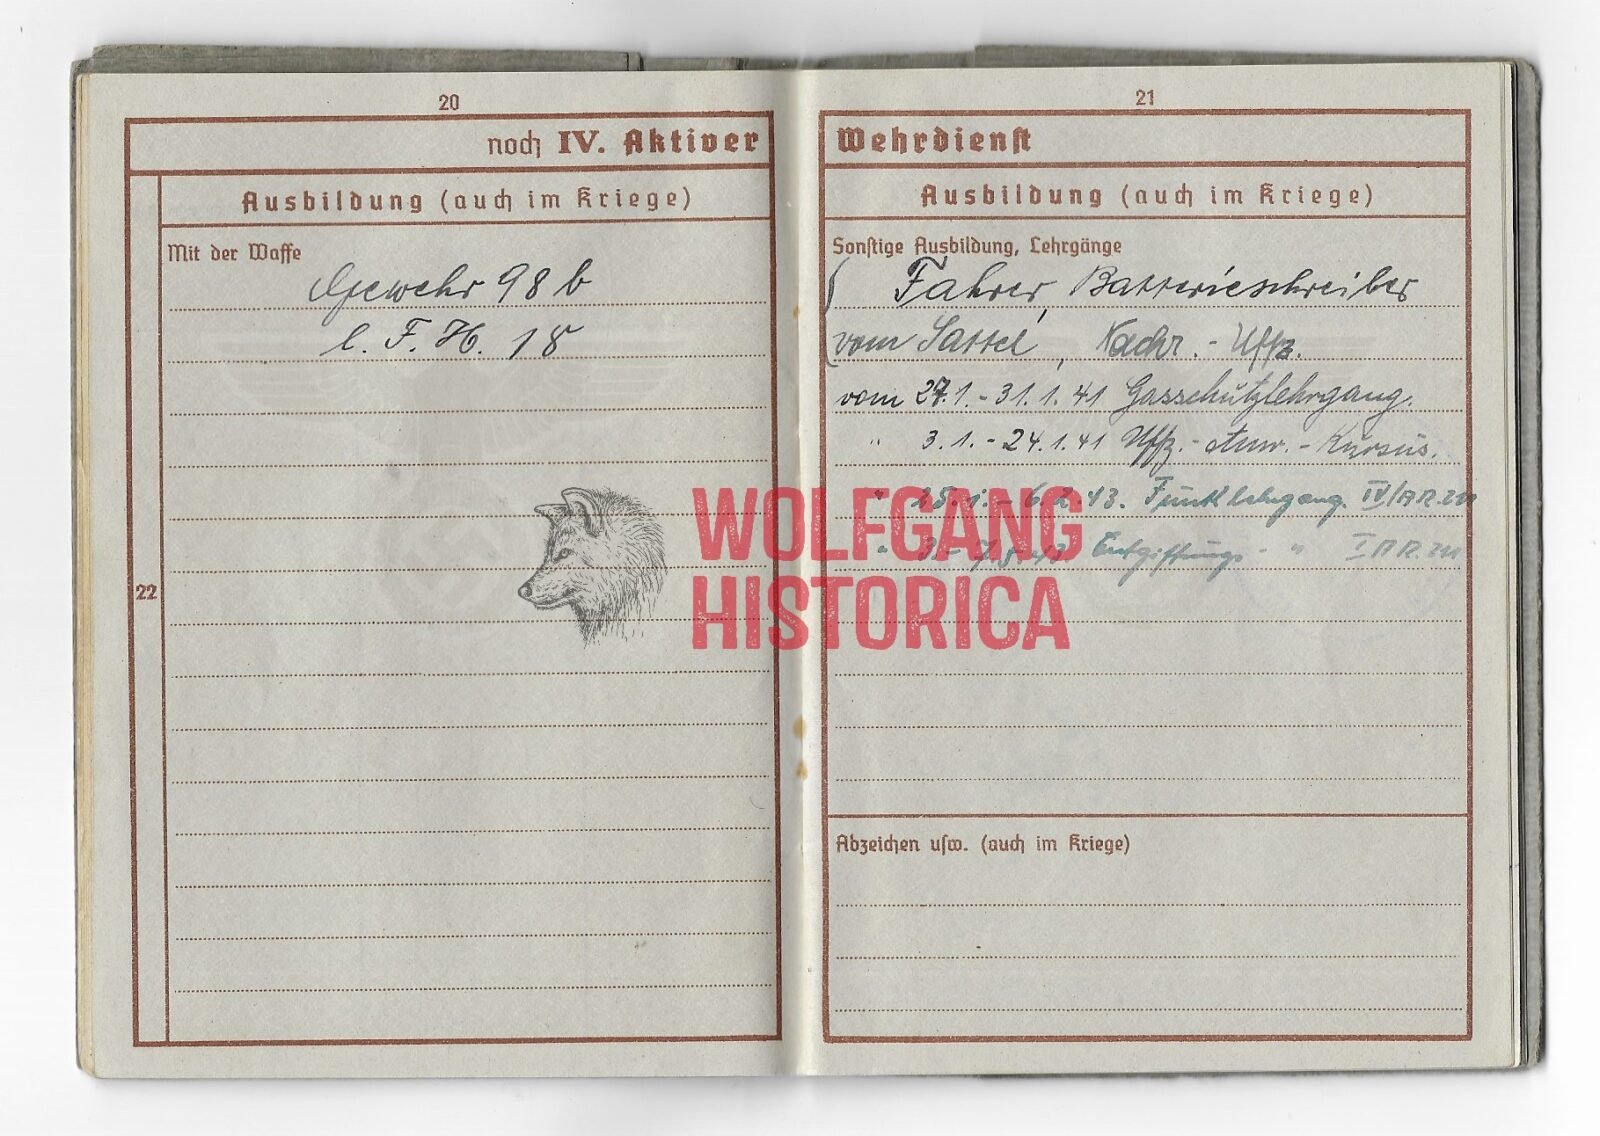 20
noch IV. Aktiver
Ausbildung (auch im Kriege)
Mit der Waffe
Gewehr 98 b
l. F. H. 18
22
21
Wehrdienst
Ausbildung (auch im Kriege)
Sonstige Ausbildung, Lehrgänge
( Fahrer, Batterieschreiber
vom Sattel, Nachr.-Uffz.
vom 27.1.-31.1.41 Gasschutzlehrgang.
" 3.1.-24.1.41 Uffz.-Anw.-Kursus.
" 25.1.-6.2.43. Funklehrgang IV/AR.
" 3.- Entgiftungs- " I AR.
Abzeichen usw. (auch im Kriege)
WOLFGANG
HISTORICA